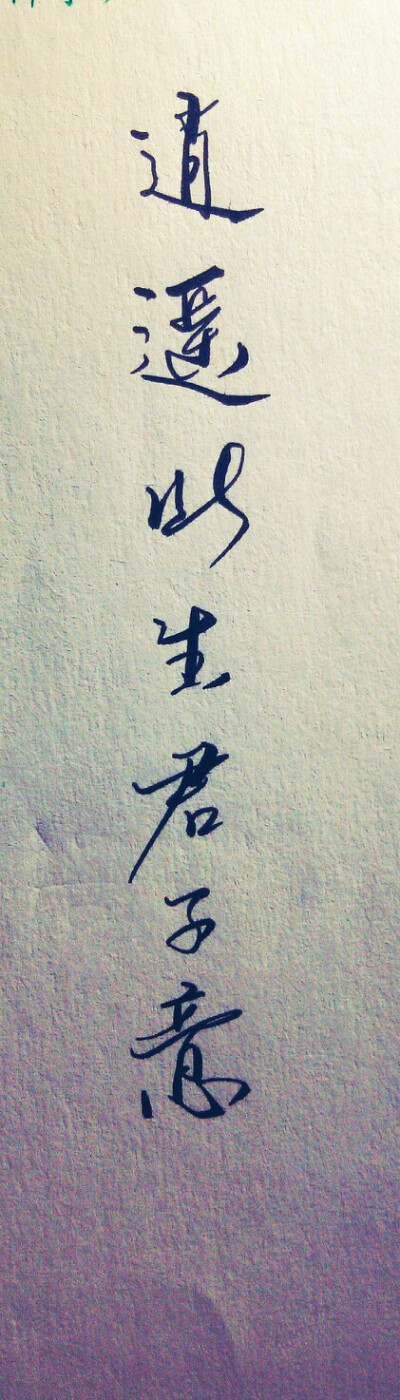 逍遥此生君子意